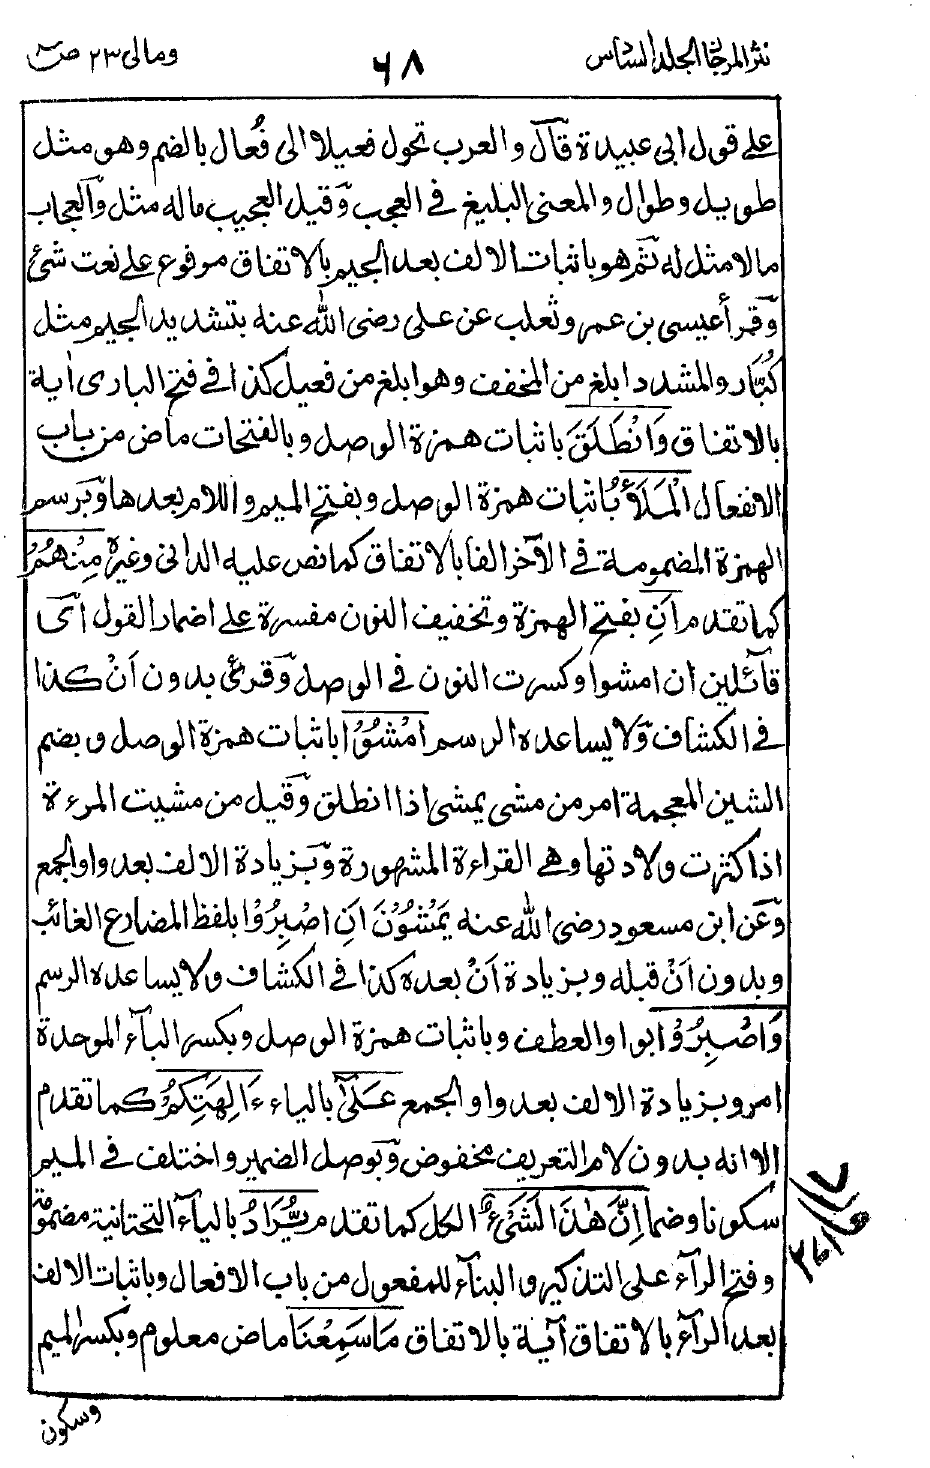 نثر المرجان المجلد السادس ٦٨ ومالى ٢٣ ص
على قول ابى عبيدة قال والعرب تحول فعيلا الى فُعال بالضم وهو مثل
طويل وطوال والمعنى البليغ فى العجب وقيل العجيب ماله مثل والعجاب
مالا مثل له ثم هو باثبات الالف بعد الجيم بالاتفاق مرفوع على نعت شئ
وقرأ عيسى بن عمر وثعلب عن على رضى الله عنه بتشديد الجيم مثل
كُبَّار والمشدد ابلغ من المخفف وهو ابلغ من فعيل كذا فى فتح البارى اية
بالاتفاق وَانْطَلَقَ باثبات همزة الوصل وبالفتحات ماض من باب
الانفعال الْمَلَأُ باثبات همزة الوصل وبفتح الميم واللام بعدها وبرسم
الهمزة المضمومة فى الآخر الفا بالاتفاق كما نص عليه الدانى وغيره مِنْهُمْ
كما تقدم اَنِ بفتح الهمزة وتخفيف النون مفسرة على اضمار القول اى
قائلين ان امشوا وكسرت النون فى الوصل وقرئ بدون اَنْ كذا
فى الكشاف ولا يساعده الرسم امْشُوْا باثبات همزة الوصل وبضم
الشين المعجمة امر من مشى يمشى اذا انطلق وقيل من مشيت المرءة
اذا كثرت ولادتها وهى القراءة المشهورة وبزيادة الالف بعد واو الجمع
وعن ابن مسعود رضى الله عنه يَمْشُوْنَ اَنِ اصْبِرُوْا بلفظ المضارع الغائب
وبدون اَنْ قبله وبزيادة اَنْ بعده كذا فى الكشاف ولا يساعده الرسم
وَاصْبِرُوْا بواو العطف وباثبات همزة الوصل وبكسر الباء الموحدة
امر وبزيادة الالف بعد واو الجمع عَلٰى بالياء ءَالِهَتِكُمْ كما تقدم
الا انه بدون لام التعريف مخفوض وبوصل الضمير واختلف فى الميم
سكونا وضما اِنَّ هٰذَا لَشَيْءٌ الحل كما تقدم يُّرَادُ بالياء التحتانية مضمومة
وفتح الراء على التذكير والبناء للمفعول من باب الافعال وباثبات الالف
بعد الراء بالاتفاق آية بالاتفاق مَا سَمِعْنَا ماض معلوم وبكسر الميم
وسكون